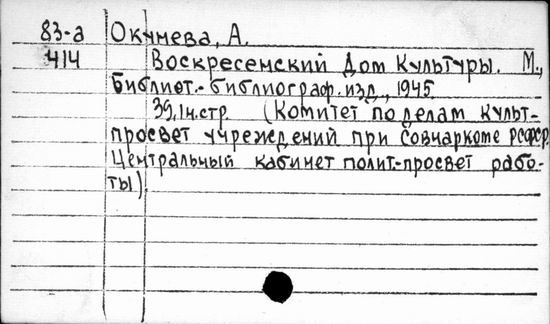 83-а Окунева, А.
414 Воскресенский Дом Культуры. М.,
Библиот.-библиограф.изд., 1945.
39,1н.стр. (Комитет по делам культ-
просвет учреждений при Совнаркоме РСФСР.
Центральный кабинет полит.-просвет рабо-
ты)